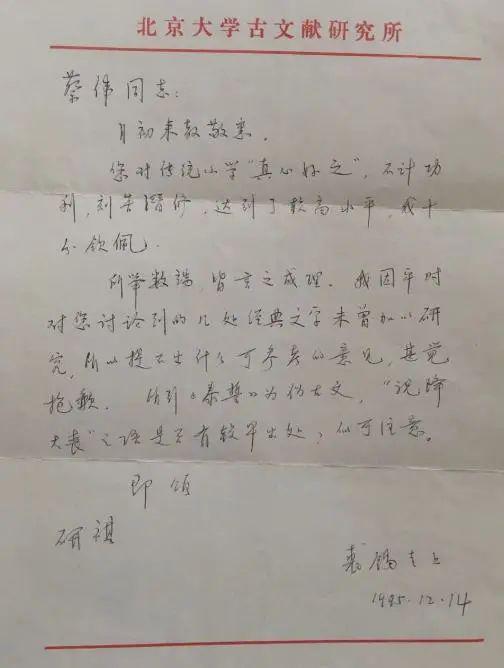 北京大学古文献研究所
蔡伟同志：
月初来教敬悉．
您对传统小学“真心好之”，不计功
利，刻苦潜修，达到了较高水平，我十
分钦佩．
所举数端，皆言之成理．我因平时
对您讨论到的几处经典文字未曾加以研
究，所以提不出什么可参考的意见，甚觉
抱歉．所引《泰誓》为伪古文，“祝降
大丧”之语是否有较早出处，似可注意。
即颂
研祺
裘锡圭上
1995.12.14